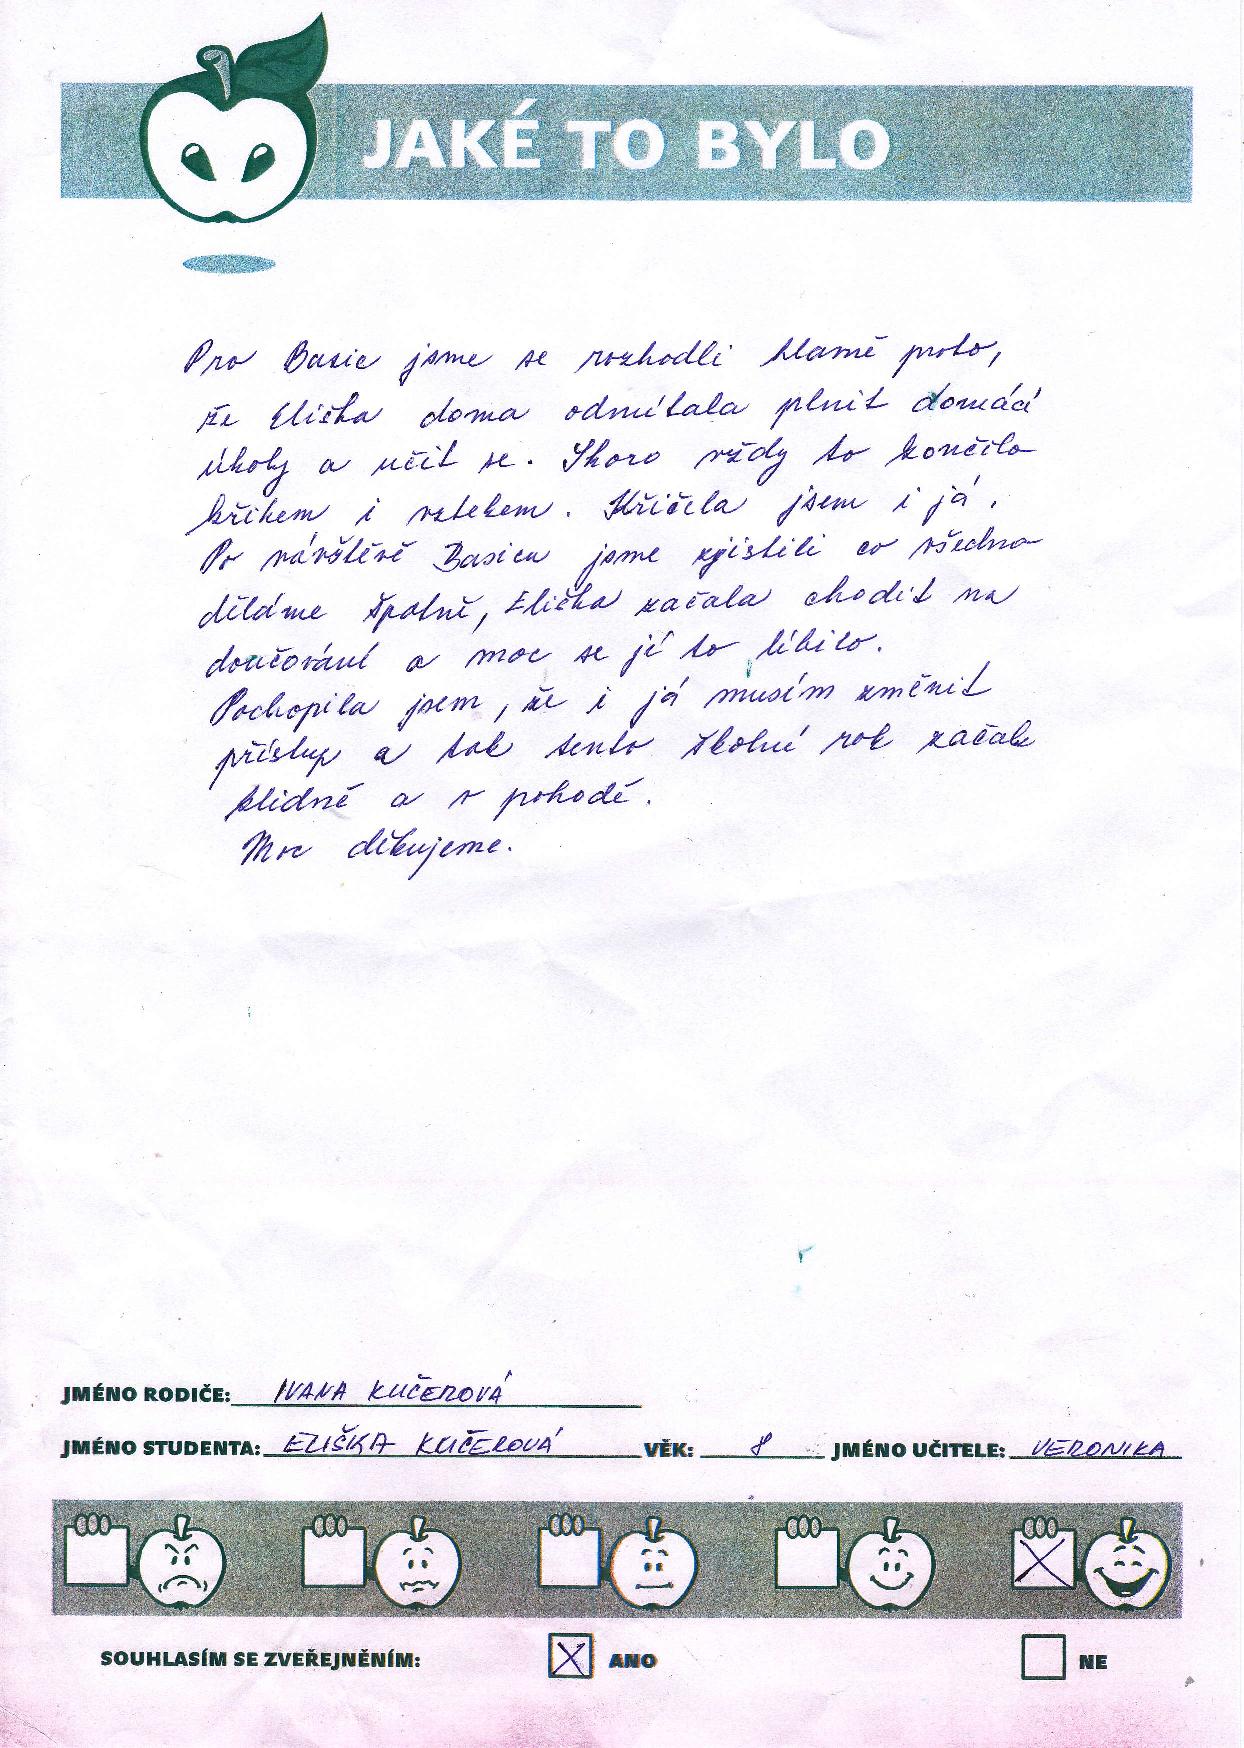 JAKÉ TO BYLO
Pro Basic jsme se rozhodli hlavně proto,
že Eliška doma odmítala plnit domácí
úkoly a učit se. Skoro vždy to končilo
křikem i vztekem. Křičela jsem i já.
Po návštěvě Basicu jsme zjistili co všechno
děláme špatně, Eliška začala chodit na
doučování a moc se jí to líbilo.
Pochopila jsem, že i já musím změnit
přístup a tak tento školní rok začal
klidně a v pohodě.
Moc děkujeme.
JMÉNO RODIČE: IVANA KUČEROVÁ
JMÉNO STUDENTA: ELIŠKA KUČEROVÁ VĚK: 8 JMÉNO UČITELE: VERONIKA
SOUHLASÍM SE ZVEŘEJNĚNÍM: X ANO NE